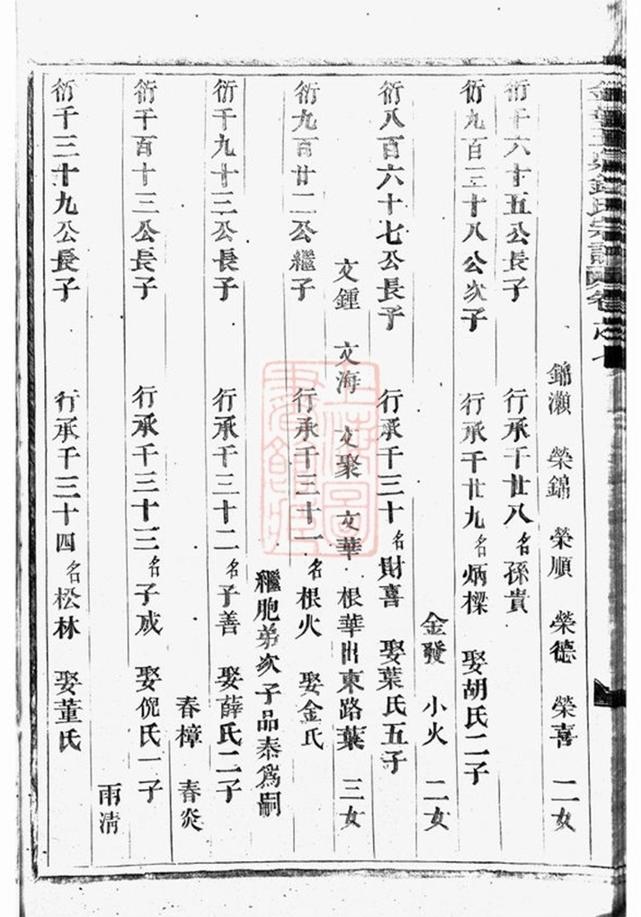 氏宗譜
卷之七
錦瀨 榮錦 榮順 榮德 榮喜 二女
衍千六十五公長子 行承千廿八名孫貴
衍九百三十八公次子 行承千廿九名炳樑 娶胡氏二子
金發 小火 二女
衍八百六十七公長子 行承千三十名財喜 娶葉氏五子
文鍾 文海 文聚 文華 根華出東路葉 三女
衍九百廿二公繼子 行承千三十一名根火 娶金氏
繼胞弟次子品泰為嗣
衍千九十三公長子 行承千三十二名子善 娶薛氏二子
春樟 春炎
衍千百十三公長子 行承千三十三名子成 娶倪氏一子
雨清
衍千三十九公長子 行承千三十四名松林 娶董氏